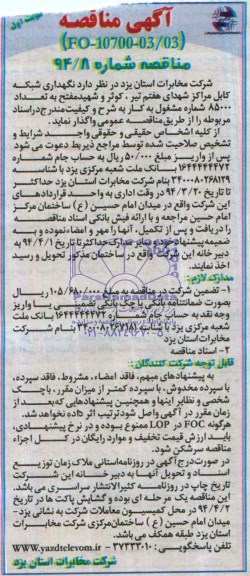 نوبت اول
آگهی مناقصه
(FO-10700-03/03)
مناقصه شماره ۹۴/۸
شرکت مخابرات استان یزد در نظر دارد نگهداری شبکه
کابل مراکز شهدای هفتم تیر، کوثر و شهیدمفتح به تعداد
۸۵۰۰۰ شماره مشغول به کار به شرح و کیفیت مندرج دراسناد
مربوطه را از طریق مناقصه عمومی واگذار نماید.
از کلیه اشخاص حقیقی و حقوقی واجد شرایط و
تشخیص صلاحیت شده توسط مراجع ذیربط دعوت می شود
پس از واریز مبلغ ۵۰/۰۰۰ ریال به حساب جام شماره
۱۶۴۴۴۴۴۴۷۲ بانک ملت شعبه مرکزی یزد با شناسه
۳۴۰۰۰۸۰۲۶۸۱۲۹ بنام شرکت مخابرات استان یزد حداکثر
تا تاریخ ۹۴/۳/۲۰ در وقت اداری به واحد قراردادهای
این شرکت واقع در میدان امام حسین (ع) ساختمان مرکز
امام حسین مراجعه و با ارائه فیش بانکی اسناد مناقصه
را دریافت و پس از تکمیل، آنها را مهر و امضاء نموده و به
ضمیمه پیشنهاد خود و سایر مدارک حداکثر تا تاریخ ۹۴/۴/۱ به
دبیر خانه این شرکت واقع در ساختمان مذکور تحویل و رسید
اخذ نمایند.
مدارک لازم:
۱- تضمین شرکت در مناقصه به مبلغ ۱۰۵/۶۸۰/۰۰۰ ریال
بصورت ضمانتنامه بانکی یا چک بانکی تضمینی یا واریز
وجه نقد به حساب جام شماره ۱۶۴۴۴۴۴۴۷۲ بانک ملت
شعبه مرکزی یزد با شناسه بنام شرکت
مخابرات استان یزد
۲- اسناد مناقصه
قابل توجه شرکت کنندگان:
به پیشنهادهای مبهم، فاقد امضاء، مشروط، فاقد سپرده،
با سپرده مخدوش، با سپرده کمتر از میزان مقرر، باچک
شخصی و نظایر اینها و همچنین پیشنهادهایی که بعد از
زمان مقرر در آگهی واصل شود ترتیب اثر داده نخواهد شد.
هرگونه FOC در LOP ممنوع بوده و در نرخ پیشنهادی،
باید ارزش قیمت تخفیف و موارد رایگان در کل اجزاء
مناقصه سرشکن شود.
در صورت درج آگهی در روزنامه استانی ملاک زمان توزیع
اسناد و تحویل آنها به دبیر خانه این شرکت
تاریخ چاپ در روزنامه کثیرالانتشار سراسری می باشد.
این مناقصه یک مرحله ای بوده و گشایش پاکت ها در تاریخ
۹۴/۴/۲ در محل کمیسیون معاملات شرکت به نشانی یزد-
میدان امام حسین (ع) ساختمان مرکزی شرکت مخابرات
استان یزد طبقه همکف می باشد.
تلفن پاسخگویی: ۳۷۲۳۳۰۱۰ - www.yazdtelecom.ir
شرکت مخابرات استان یزد